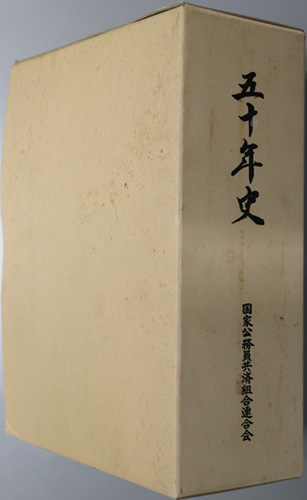 五十年史
国家公務員共済組合連合会